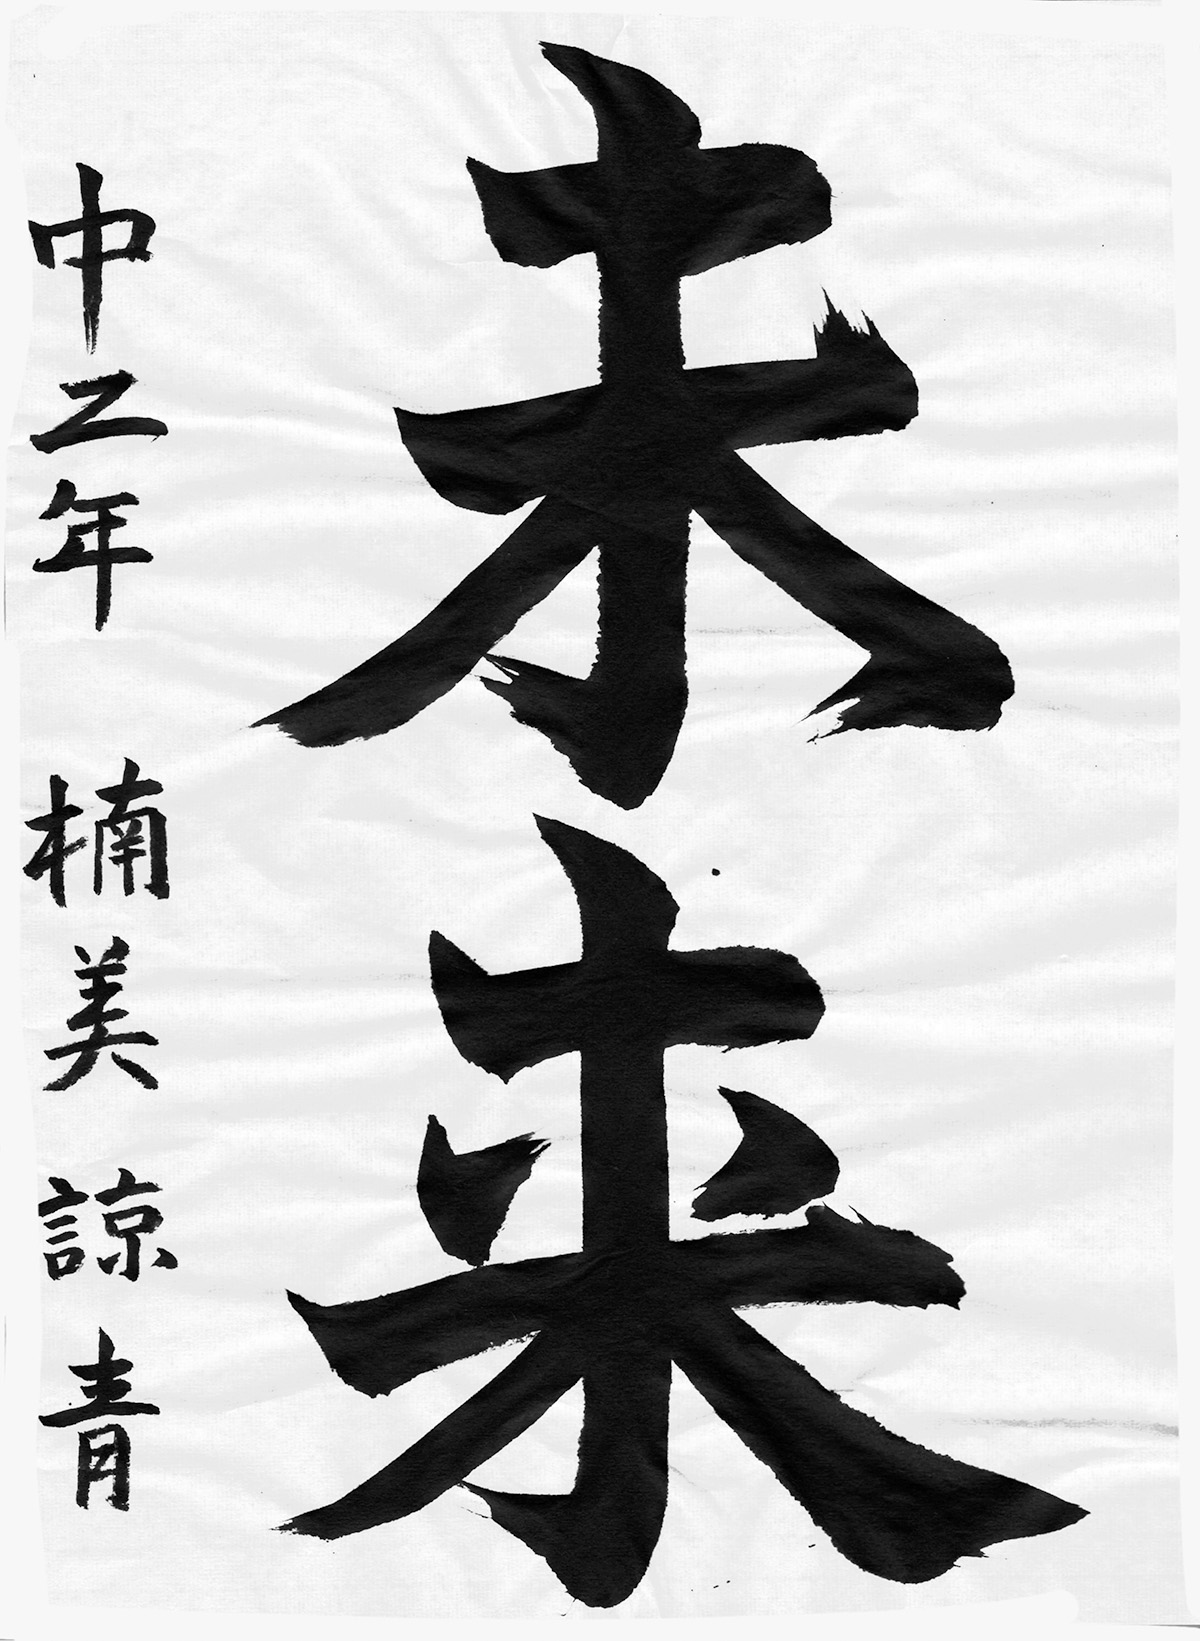 未来
中二年 楠美諒青